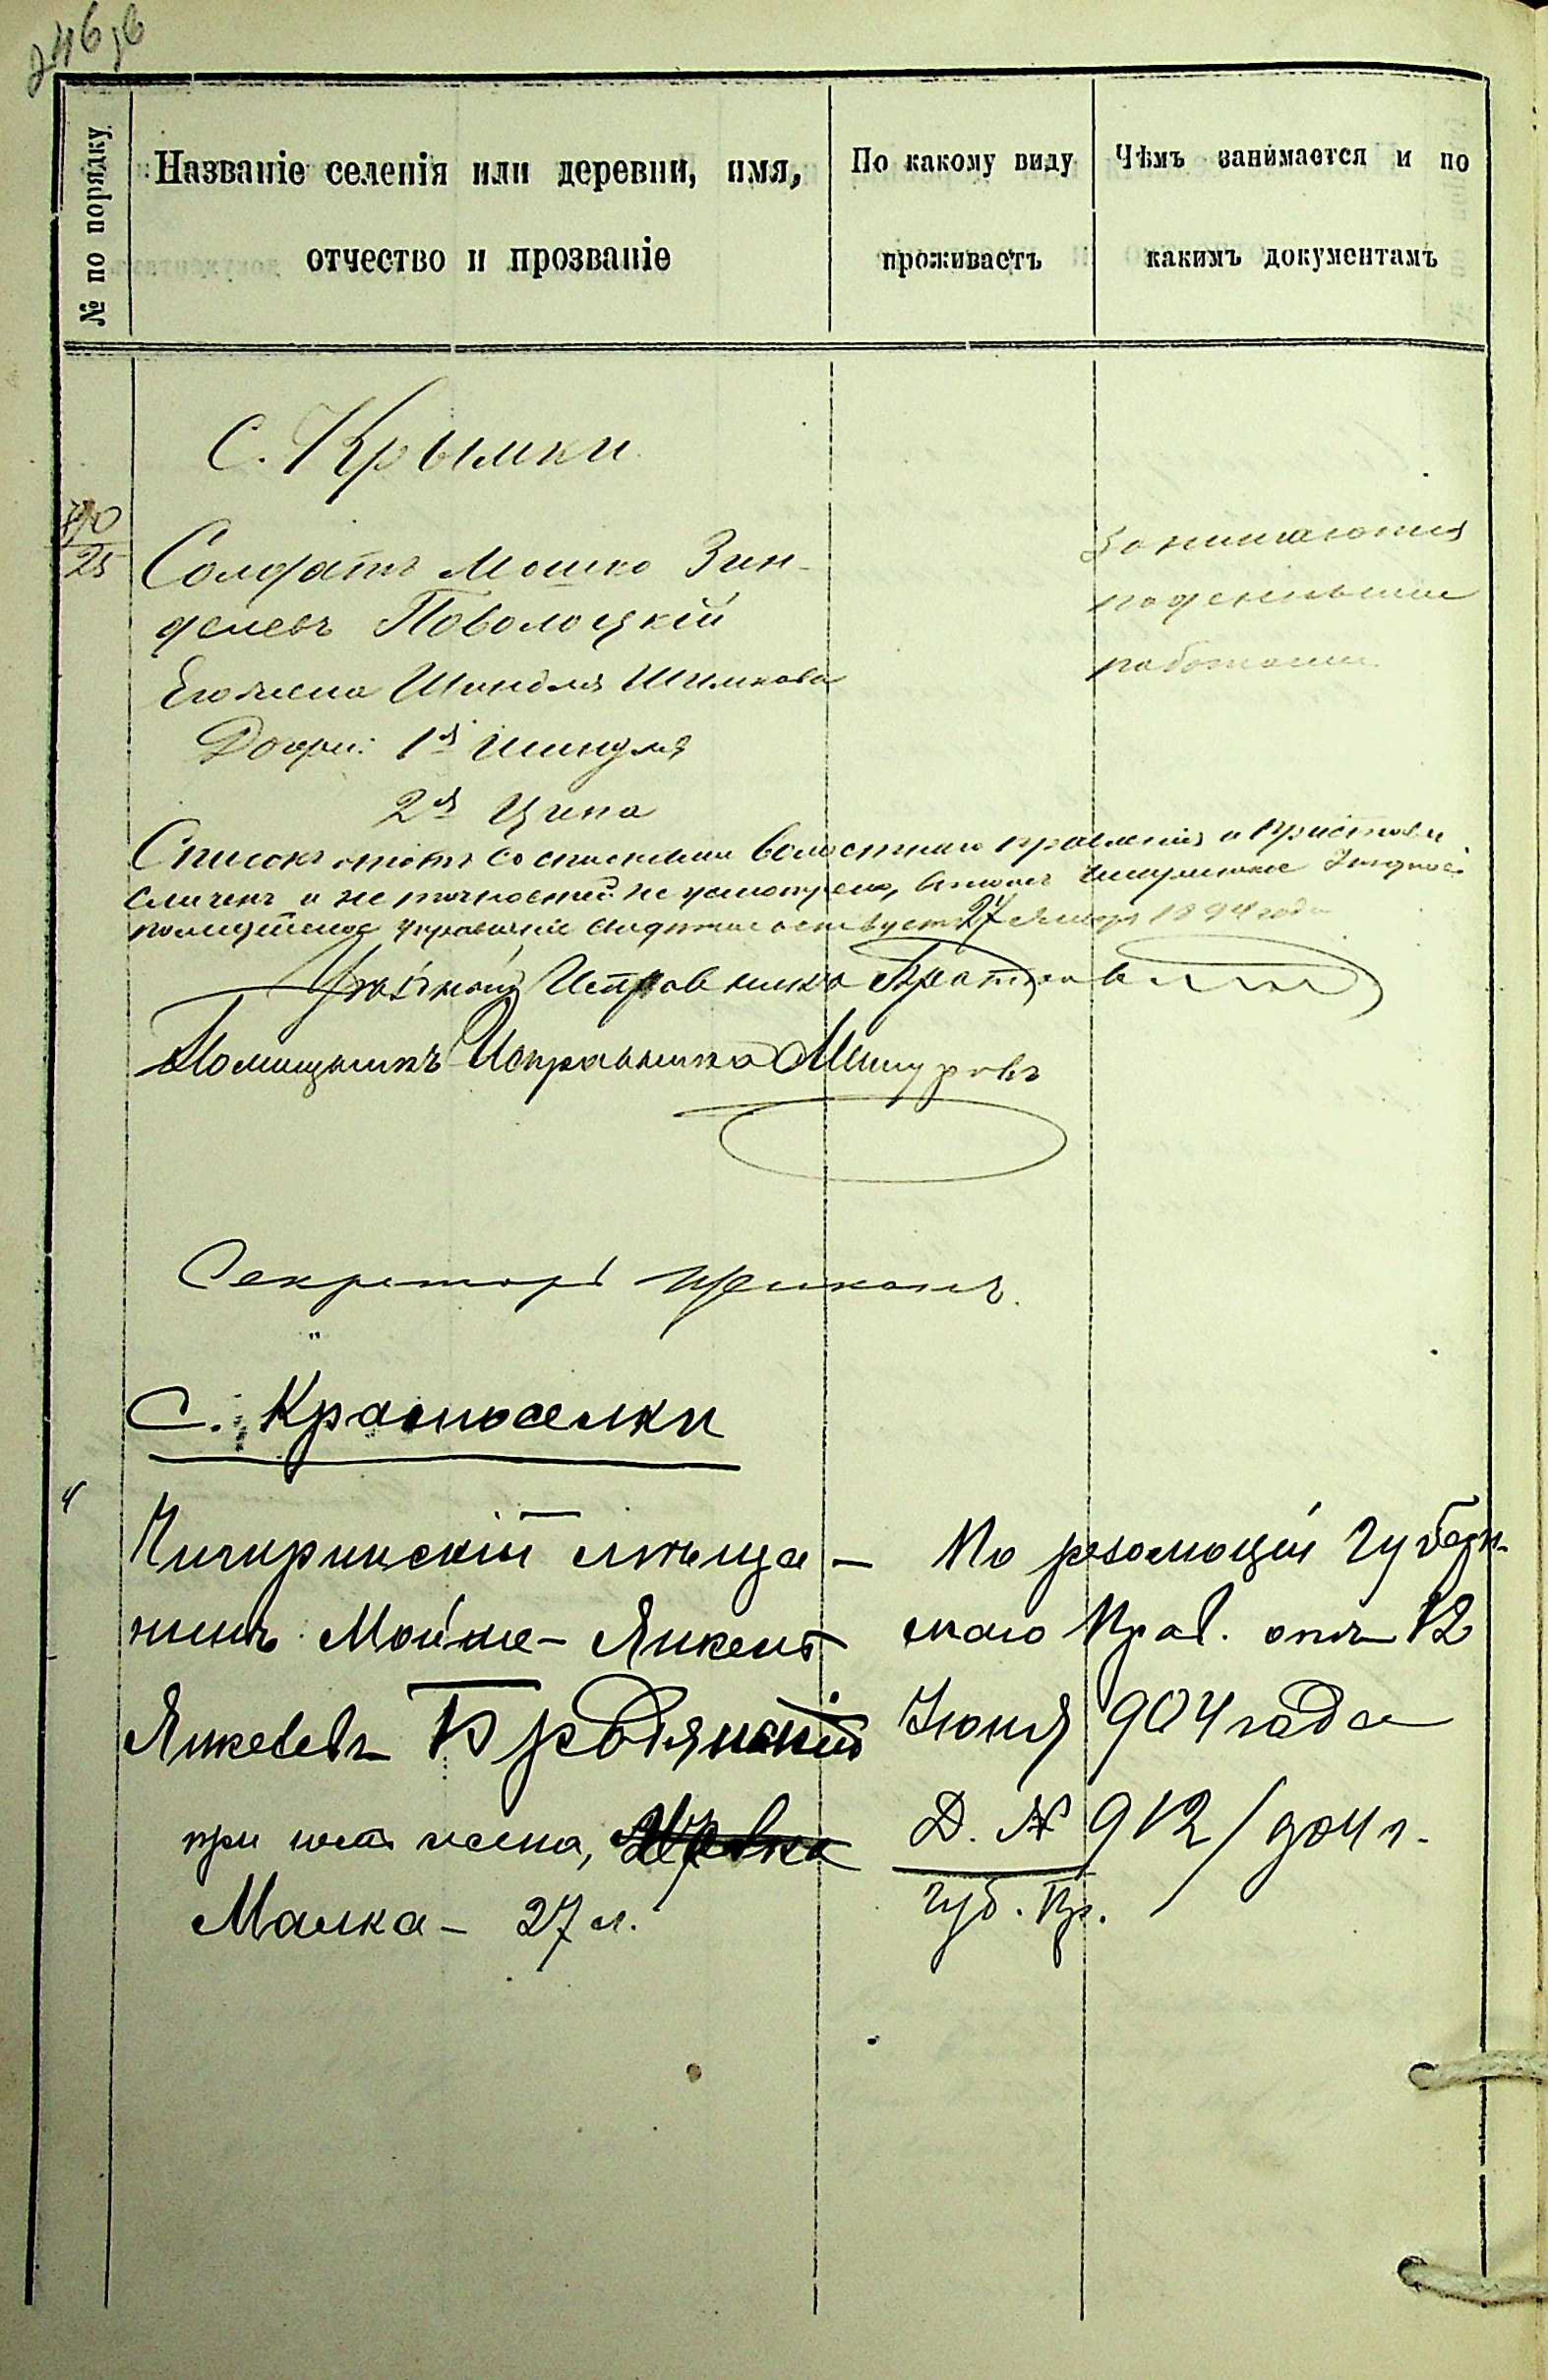 246 об
№ по порядку
Названіе селенія или деревни, имя,
отчество и прозваніе
По какому виду
проживаетъ
Чѣмъ занимается и по
какимъ документамъ
С. Крымки
25
Солдатъ Мошко Зин-
делевъ Поволоцкій
Его жена Шендля Шимкова
Дочери: 1я Шендля
2я Цина
Занимаются
поденными
работами
Списокъ этотъ со списками волостнаго правленія и Пристава
сличенъ и неточностей не усмотрено, въ томъ Чигиринское Уездное
полицейское управленіе свидетельствуетъ 27 Января 1894 года
Уѣздный Исправникъ
Помощникъ Исправника
Секретарь
С. Красноселки
Чигиринскій мѣща-
нинъ Мойше-Янкель
Янкелевъ Бродянскій
при немъ жена,
Малка - 27 л.
По резолюціи Губерн-
скаго Прав. отъ 12
Іюня 904 года
Д. № 912/904 г.
Губ. Пр.